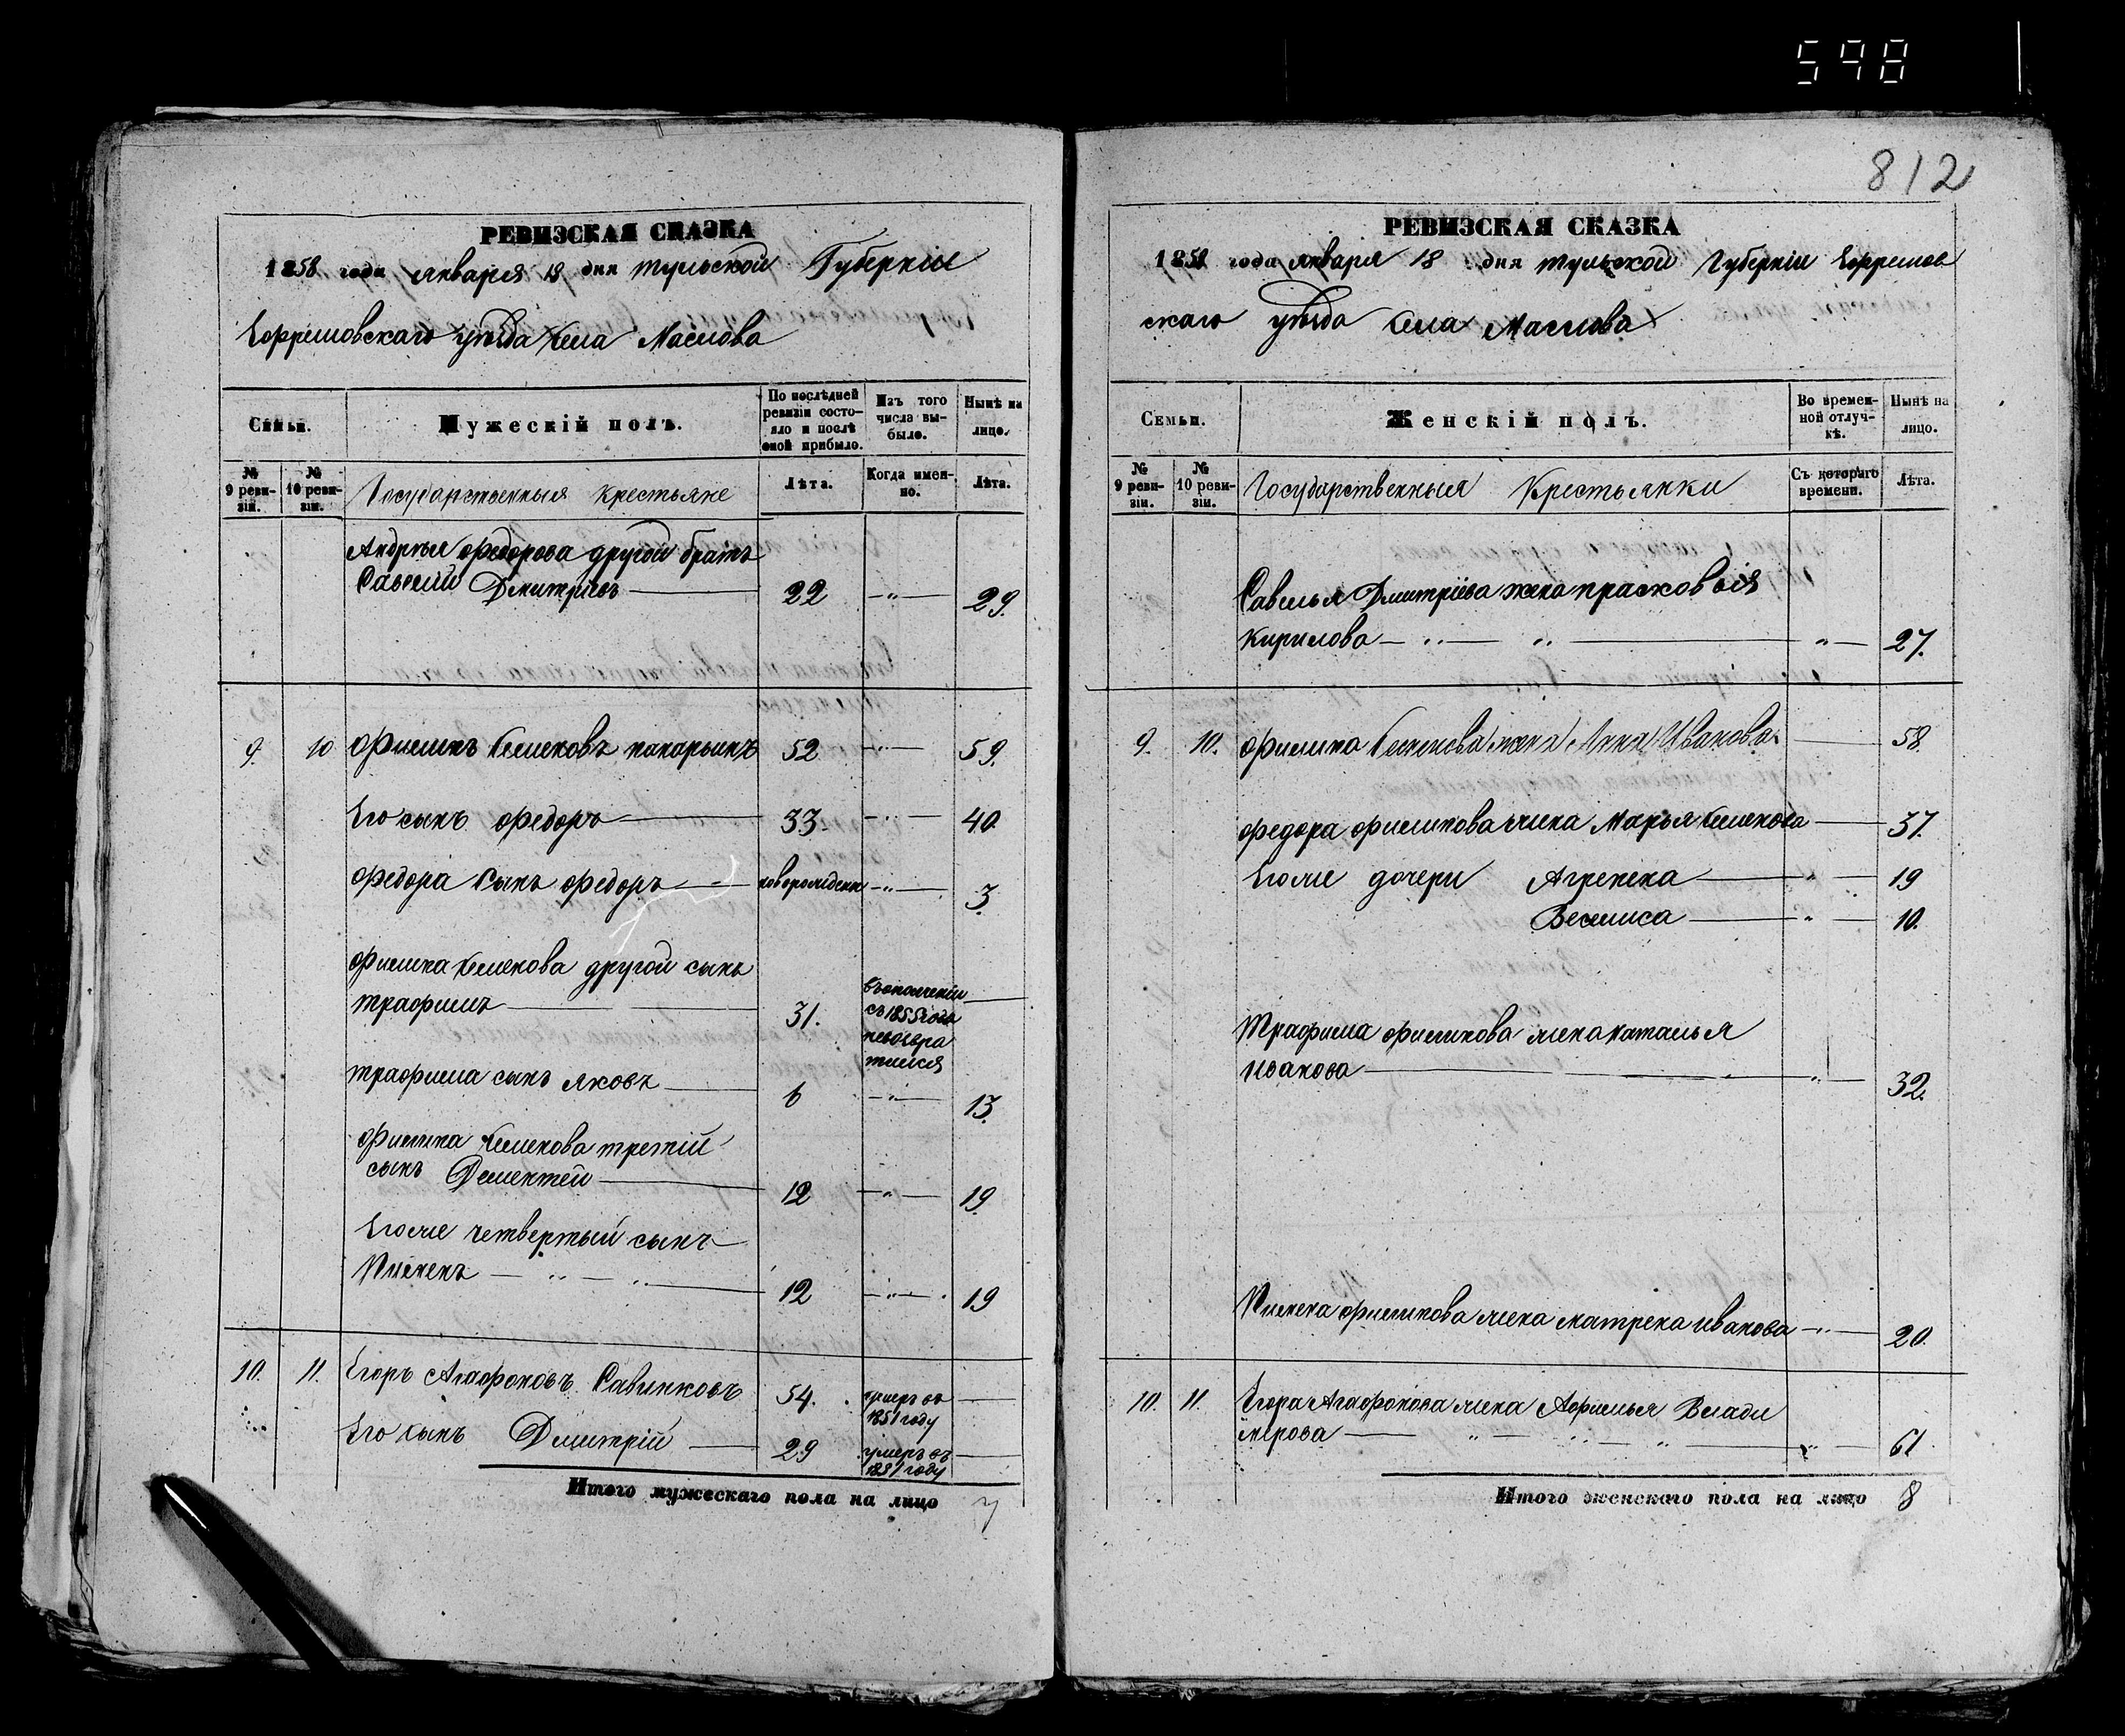 598
812
РЕВИЗСКАЯ СКАЗКА
1858 года января 18 дня тульской Губернiи
Ефремовскаго уѣзда Села Маслова
Семьи.
Мужескiй полъ.
По послѣдней ревизiи состояло и послѣ оной прибыло.
Изъ того числа выбыло.
Нынѣ на лицо.
№ 9 ревизiи.
№ 10 ревизiи.
Государственныя крестьяне
Лѣта.
Когда именно.
Лѣта.
Андрѣя федорова другой братъ
Савелiй Дмитрiевъ 22 29.
9. 10 филипъ Семеновъ 52 59.
Его сынъ федоръ 33 40
федора Сынъ федоръ новорожденн 3.
филипа Семенова другой сынъ
трафимъ 31. въ ополченiи
съ 1855 года
невозвра
тился
трафима сынъ яковъ 6 13.
филипа Семенова третiй
сынъ Дементей 12 19.
Егоже четвертый сынъ
Пименъ 12 19
10. 11. Егоръ Агафоновъ Савинковъ 54. умеръ въ
1851 году
Его сынъ Дмитрiй 29 умеръ въ
1851 году
Итого мужескаго пола на лицо 7
РЕВИЗСКАЯ СКАЗКА
1858 года января 18 дня тульской Губернiи Ефремов
скаго уѣзда Села Маслова
Семьи.
Женскiй полъ.
Во временной отлучкѣ.
Нынѣ на лицо.
№ 9 ревизiи.
№ 10 ревизiи.
Государственныя Крестьянки
Съ котораго времени.
Лѣта.
Савелья Дмитрiева жена прасковья
Кирилова 27.
9. 10. филипа Семенова жена Анна Иванова 58
федора филипова жена Марья Семенова 37.
Егоже дочери Агрепена 19
Веселиса 10.
Трафима филипова жена наталья
иванова 32.
Пимена филипова жена матрена иванова 20.
10. 11. Егора Агафонова жена Афимья Влади
мерова 61
Итого женскаго пола на лицо 8